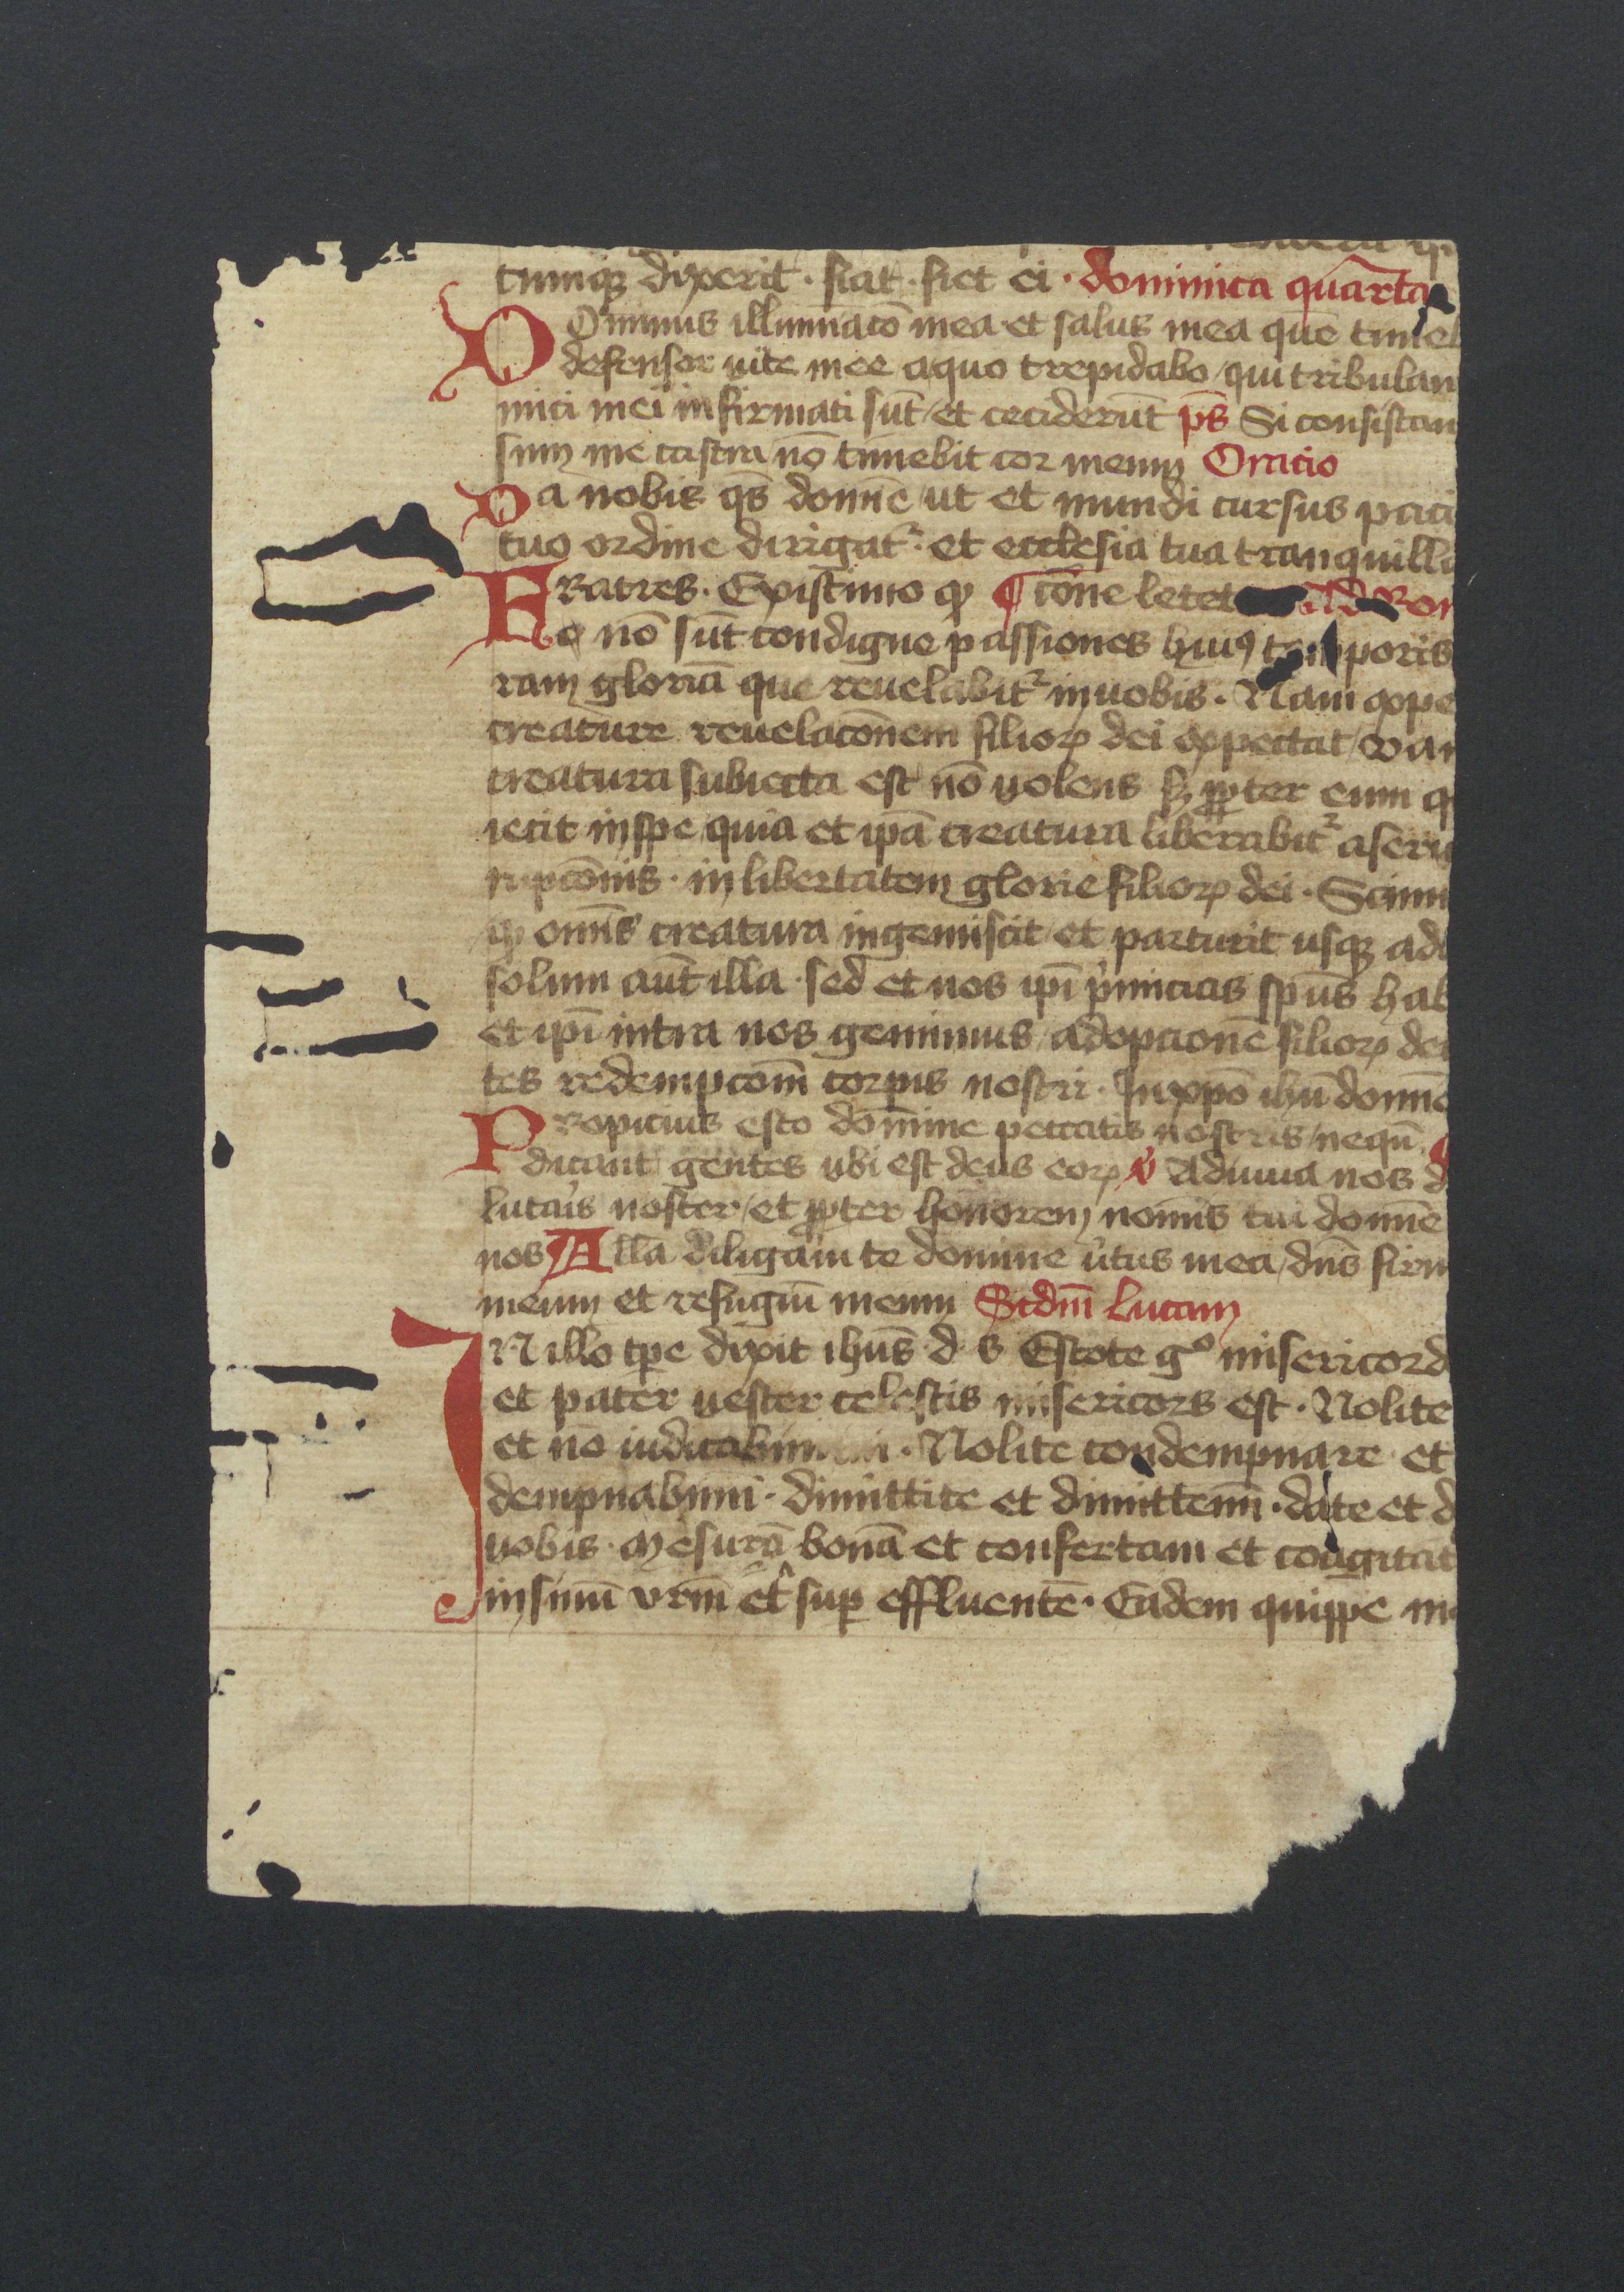 cumq; dixerit · fiat · fiet ei · dominica quarta
Ominus illuminacō mea et salus mea quē timeb
defensor uite mee a quo trepidabo / qui tribulan
mici mei infirmati sūt / et ceciderūt ps̄ Si consistan
sum me castra nō timebit cor meum Oracio
Da nobis qs̄ domīe ut et mundi cursus paci
tuo ordine dirigat᷑ · et ecclesia tua tranquilla
FRatres · Existimo qꝫ ¶ cōne letet Ad Rom
nō sūt condigne passiones huiꝰ temporis
ram gloriā que reuelabit᷑ in uobis · Nam expe
creature reuelacōnem filioꝝ dei expectat / van
creatura subiecta est nō uolens sꝫ ꝓpter eum q
iecit in spe / quia et ip̄a creatura liberabit᷑ a seru
rupcōnis · in libertatem glorie filioꝝ dei · Scimu
qꝫ omīs creatura ingemiscit / et parturit usqꝫ adh
solum aūt illa · sed et nos ip̄i primicias sp̄us hab
et ip̄i intra nos gemimus / adopcionē filioꝝ dei
tes redempcōm corpis nostri · In xpō ihū domīo
PRopicius esto domine peccatis nostris / neqū
dicant gentes ubi est deus eoꝝ v̄ Adiuua nos d
lutaris noster / et ꝓpter honorem nomīs tui domīe
nos Alla diligam te domine v̓tus mea / dn̄s firm
meum et refugiū meum Scdm̄ lucam
IN illo tp̄e dixit ihūs d · s Estote gº misericord
et pater uester celestis misericors est · Nolite
et nō iudicabim · Nolite condempnare · et
dempnabimī · dimittite et dimittemī · date et d
uobis · Mesurā bonā et confertam et coagitat
in sinū vr̄m et sup effluentē · Eadem quippe me